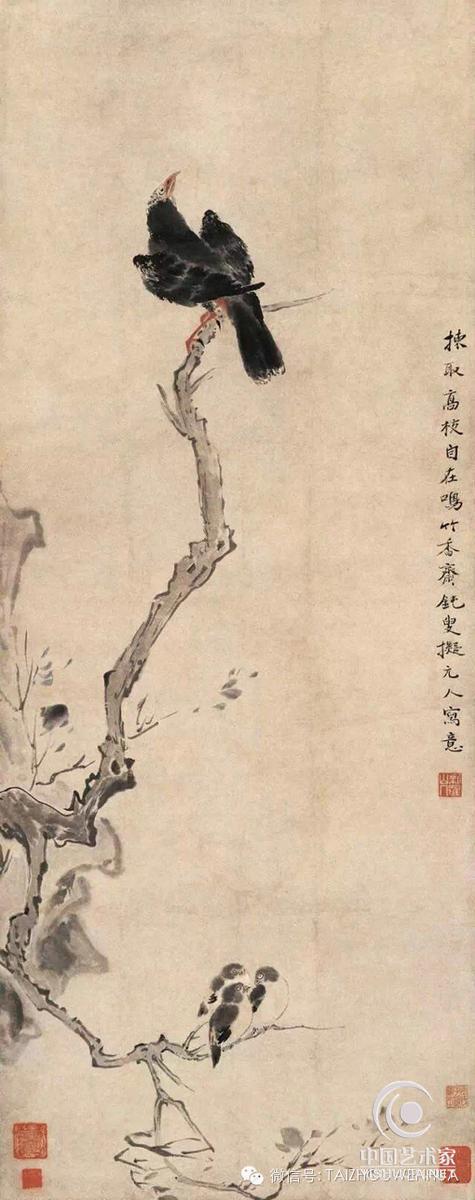 揀取高枝自在鳴竹香齋鈍叟擬元人寫意
中国艺术家
YISHUJIA.NET
微信号: TAIZHOUWENHUA